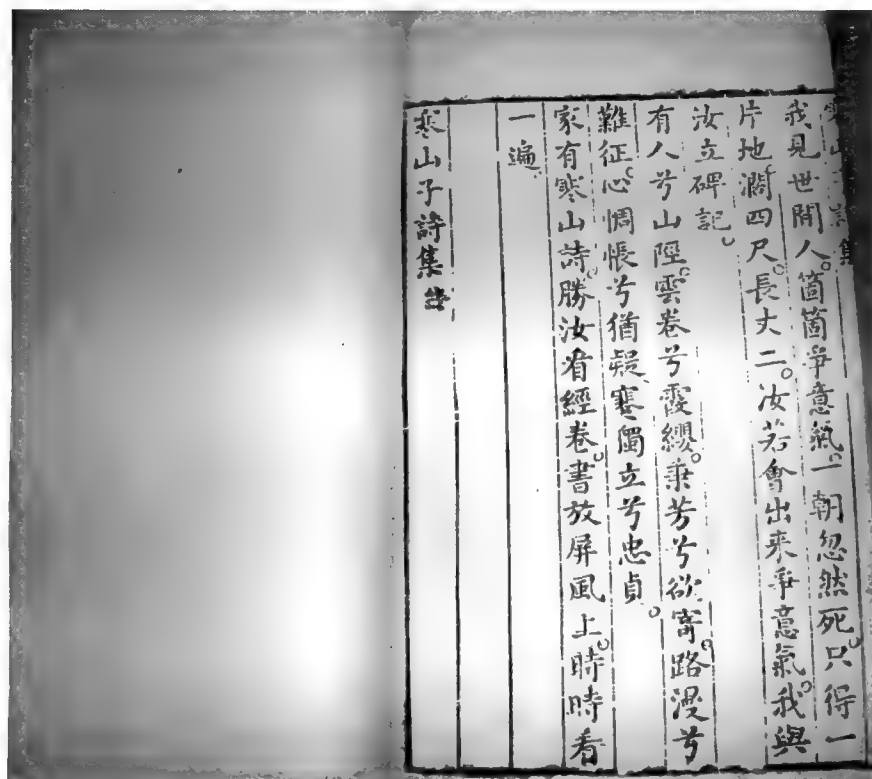 寒山子詩集
我見世間人。箇箇爭意氣。一朝忽然死。只得一
片地。濶四尺。長丈二。汝若會出来爭意氣。我與
汝立碑記。
有人兮山陘。雲卷兮霞纓。秉芳兮欲寄。路漫兮
難征。心惆悵兮猶疑。蹇獨立兮忠貞。
家有寒山詩。勝汝看經卷。書放屏風上。時時看
一遍。
寒山子詩集